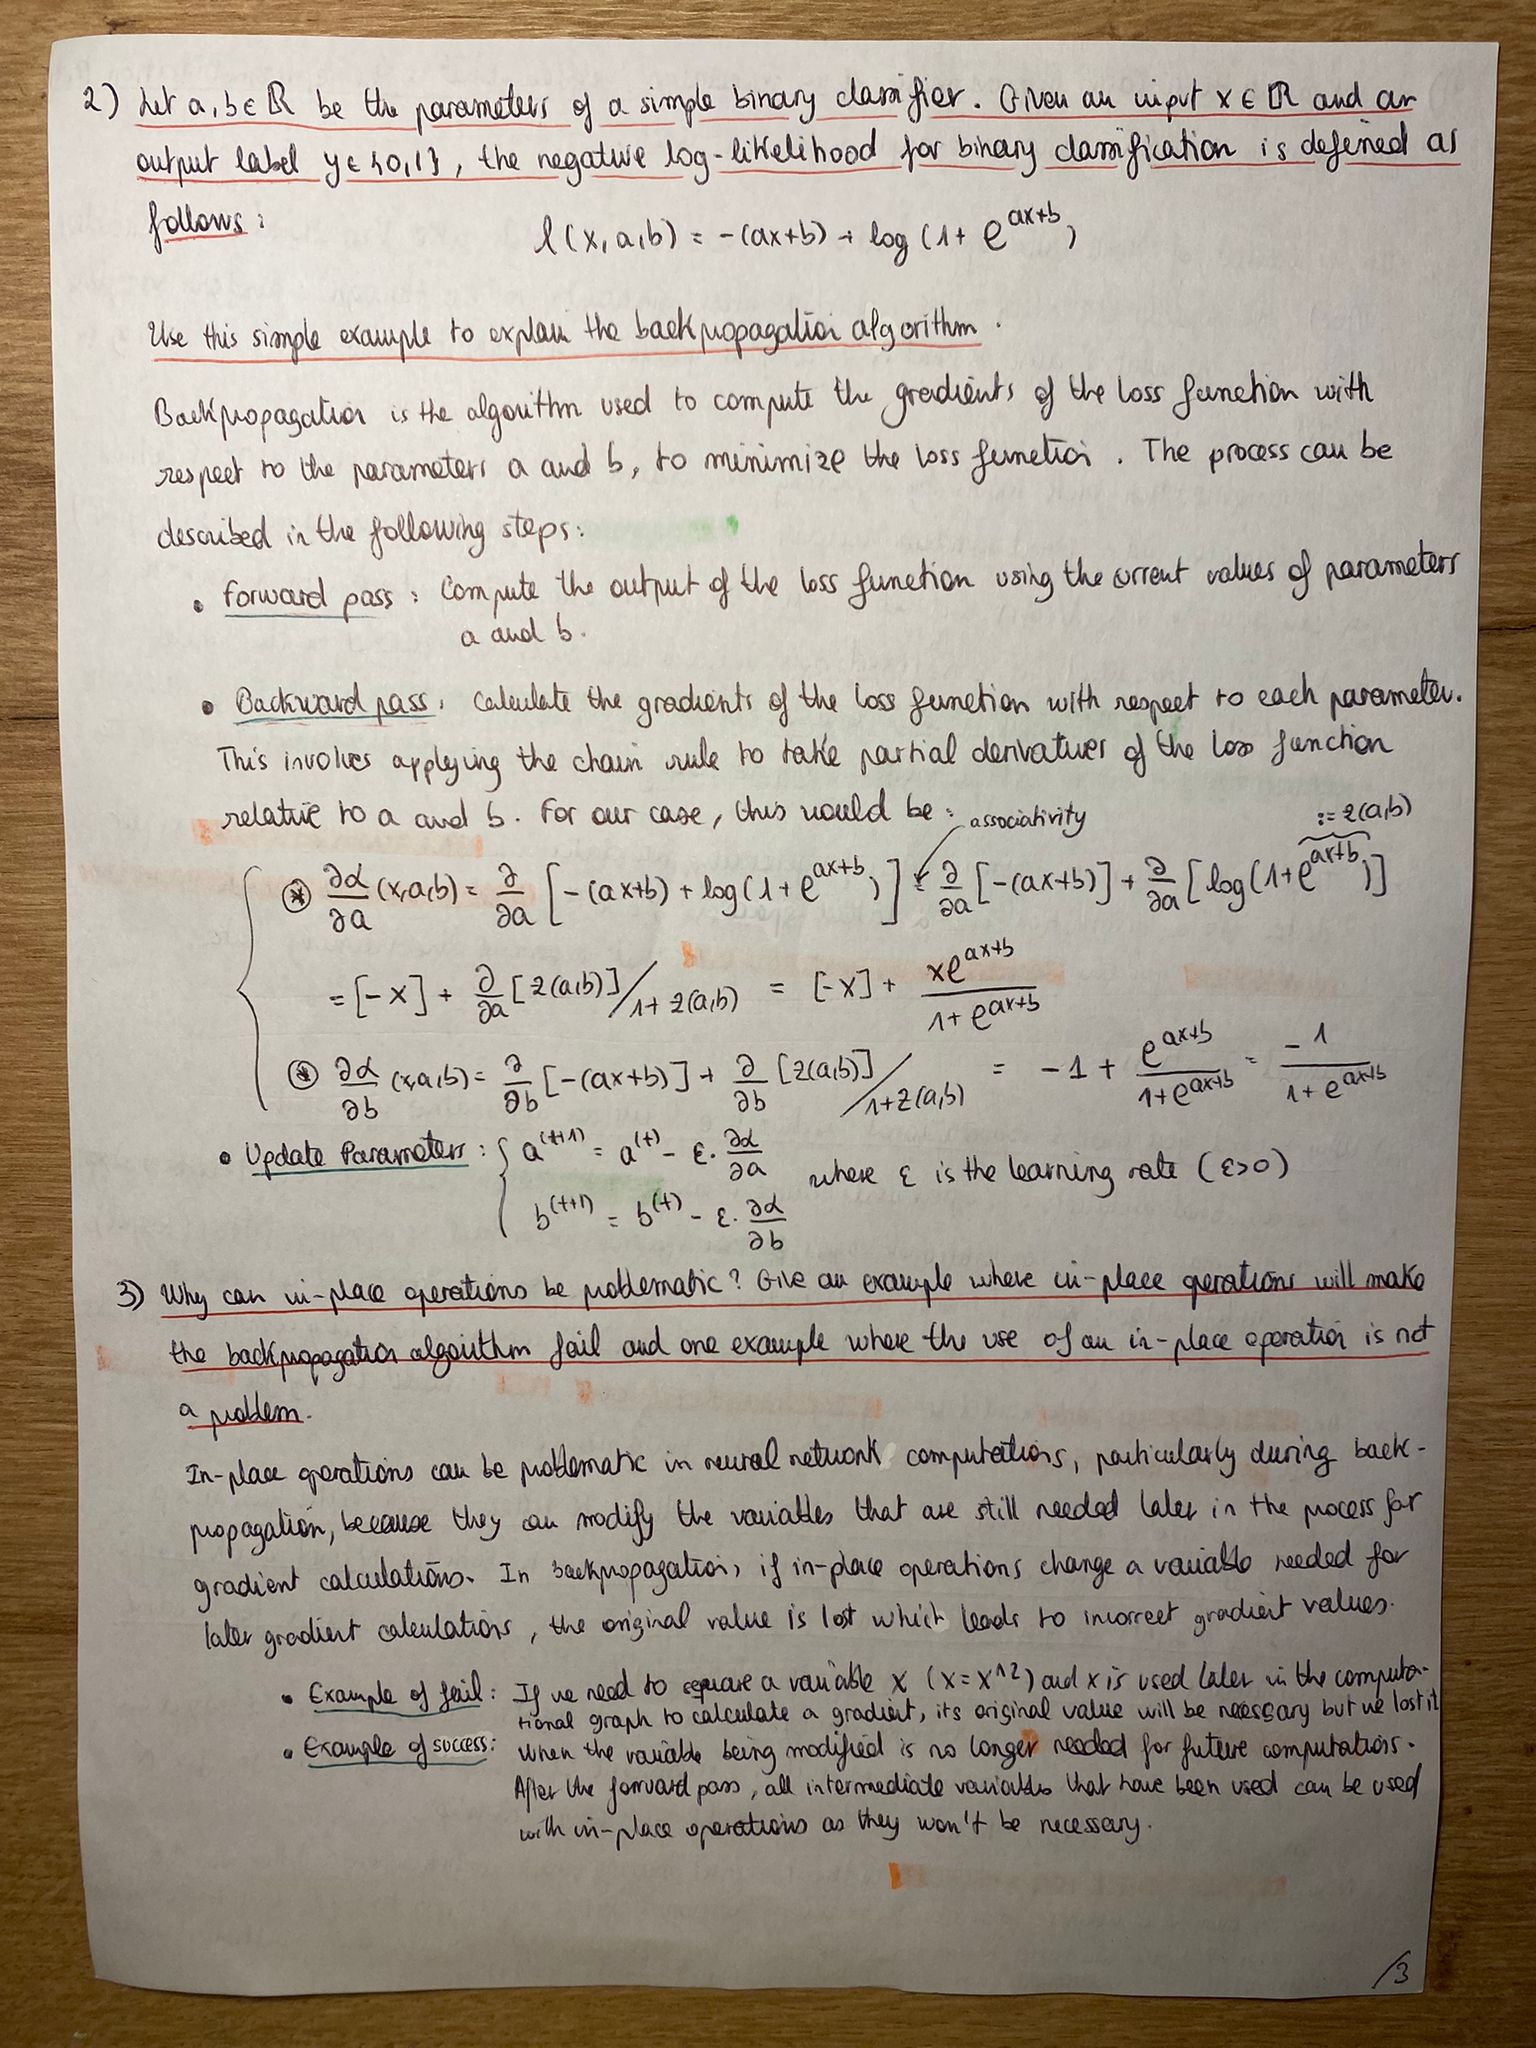 2) Let a, b ∈ ℝ be the parameters of a simple binary classifier. Given an input x ∈ ℝ and an
output label y ∈ {0,1}, the negative log-likelihood for binary classification is defined as
follows:
l(x,a,b) = -(ax+b) + log(1+ e^{ax+b})
Use this simple example to explain the backpropagation algorithm.
Backpropagation is the algorithm used to compute the gradients of the loss function with
respect to the parameters a and b, to minimize the loss function. The process can be
described in the following steps:
• Forward pass: Compute the output of the loss function using the current values of parameters
a and b.
• Backward pass: Calculate the gradients of the loss function with respect to each parameter.
This involves applying the chain rule to take partial derivatives of the loss function
relative to a and b. For our case, this would be: associativity := z(a,b)
⊛ ∂α/∂a (x,a,b) = ∂/∂a [-(ax+b) + log(1+e^{ax+b})] = ∂/∂a [-(ax+b)] + ∂/∂a [log(1+e^{ax+b})]
= [-x] + ∂/∂a [z(a,b)] / 1+z(a,b) = [-x] + xe^{ax+b} / 1+e^{ax+b}
⊛ ∂α/∂b (x,a,b) = ∂/∂b [-(ax+b)] + ∂/∂b [z(a,b)] / 1+z(a,b) = -1 + e^{ax+b} / 1+e^{ax+b} = -1 / 1+e^{ax+b}
• Update Parameters: { a^{(t+1)} = a^{(t)} - ε · ∂α/∂a where ε is the learning rate (ε>0)
b^{(t+1)} = b^{(t)} - ε · ∂α/∂b
3) Why can in-place operations be problematic? Give an example where in-place operations will make
the backpropagation algorithm fail and one example where the use of an in-place operation is not
a problem.
In-place operations can be problematic in neural network computations, particularly during back-
propagation, because they can modify the variables that are still needed later in the process for
gradient calculations. In backpropagation, if in-place operations change a variable needed for
later gradient calculations, the original value is lost which leads to incorrect gradient values.
• Example of fail: If we need to square a variable x (x = x^2) and x is used later in the computa-
tional graph to calculate a gradient, its original value will be necessary but we lost it
• Example of success: When the variable being modified is no longer needed for future computations.
After the forward pass, all intermediate variables that have been used can be used
with in-place operations as they won't be necessary.
/3